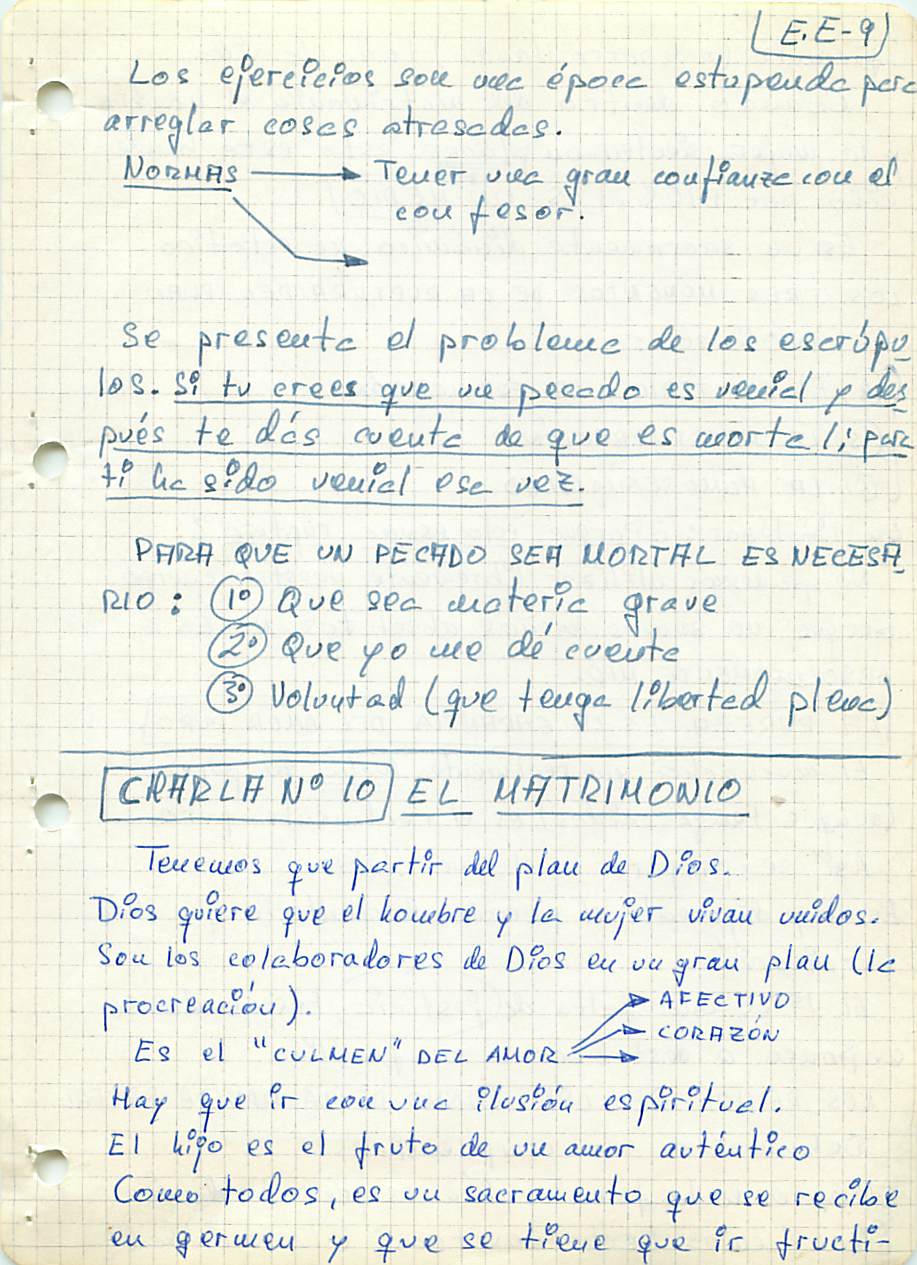 E.E-9
Los ejercicios son una época estupenda para
arreglar cosas atrasadas.
NORMAS → Tener una gran confianza con el
confesor.
Se presenta el problema de los escrúpu
los. Si tu crees que un pecado es venial y des
pués te dás cuenta de que es mortal; para
ti ha sido venial esa vez.
PARA QUE UN PECADO SEA MORTAL ES NECESA
RIO: 1º Que sea materia grave
2º Que yo me dé cuenta
3º Voluntad (que tenga libertad plena)
CHARLA Nº 10 EL MATRIMONIO
Tenemos que partir del plan de Dios.
Dios quiere que el hombre y la mujer vivan unidos.
Son los colaboradores de Dios en un gran plan (la
procreación).
→ AFECTIVO
→ CORAZÓN
Es el "CULMEN" DEL AMOR →
Hay que ir con una ilusión espiritual.
El hijo es el fruto de un amor auténtico
Como todos, es un sacramento que se recibe
en germen y que se tiene que ir fructi-